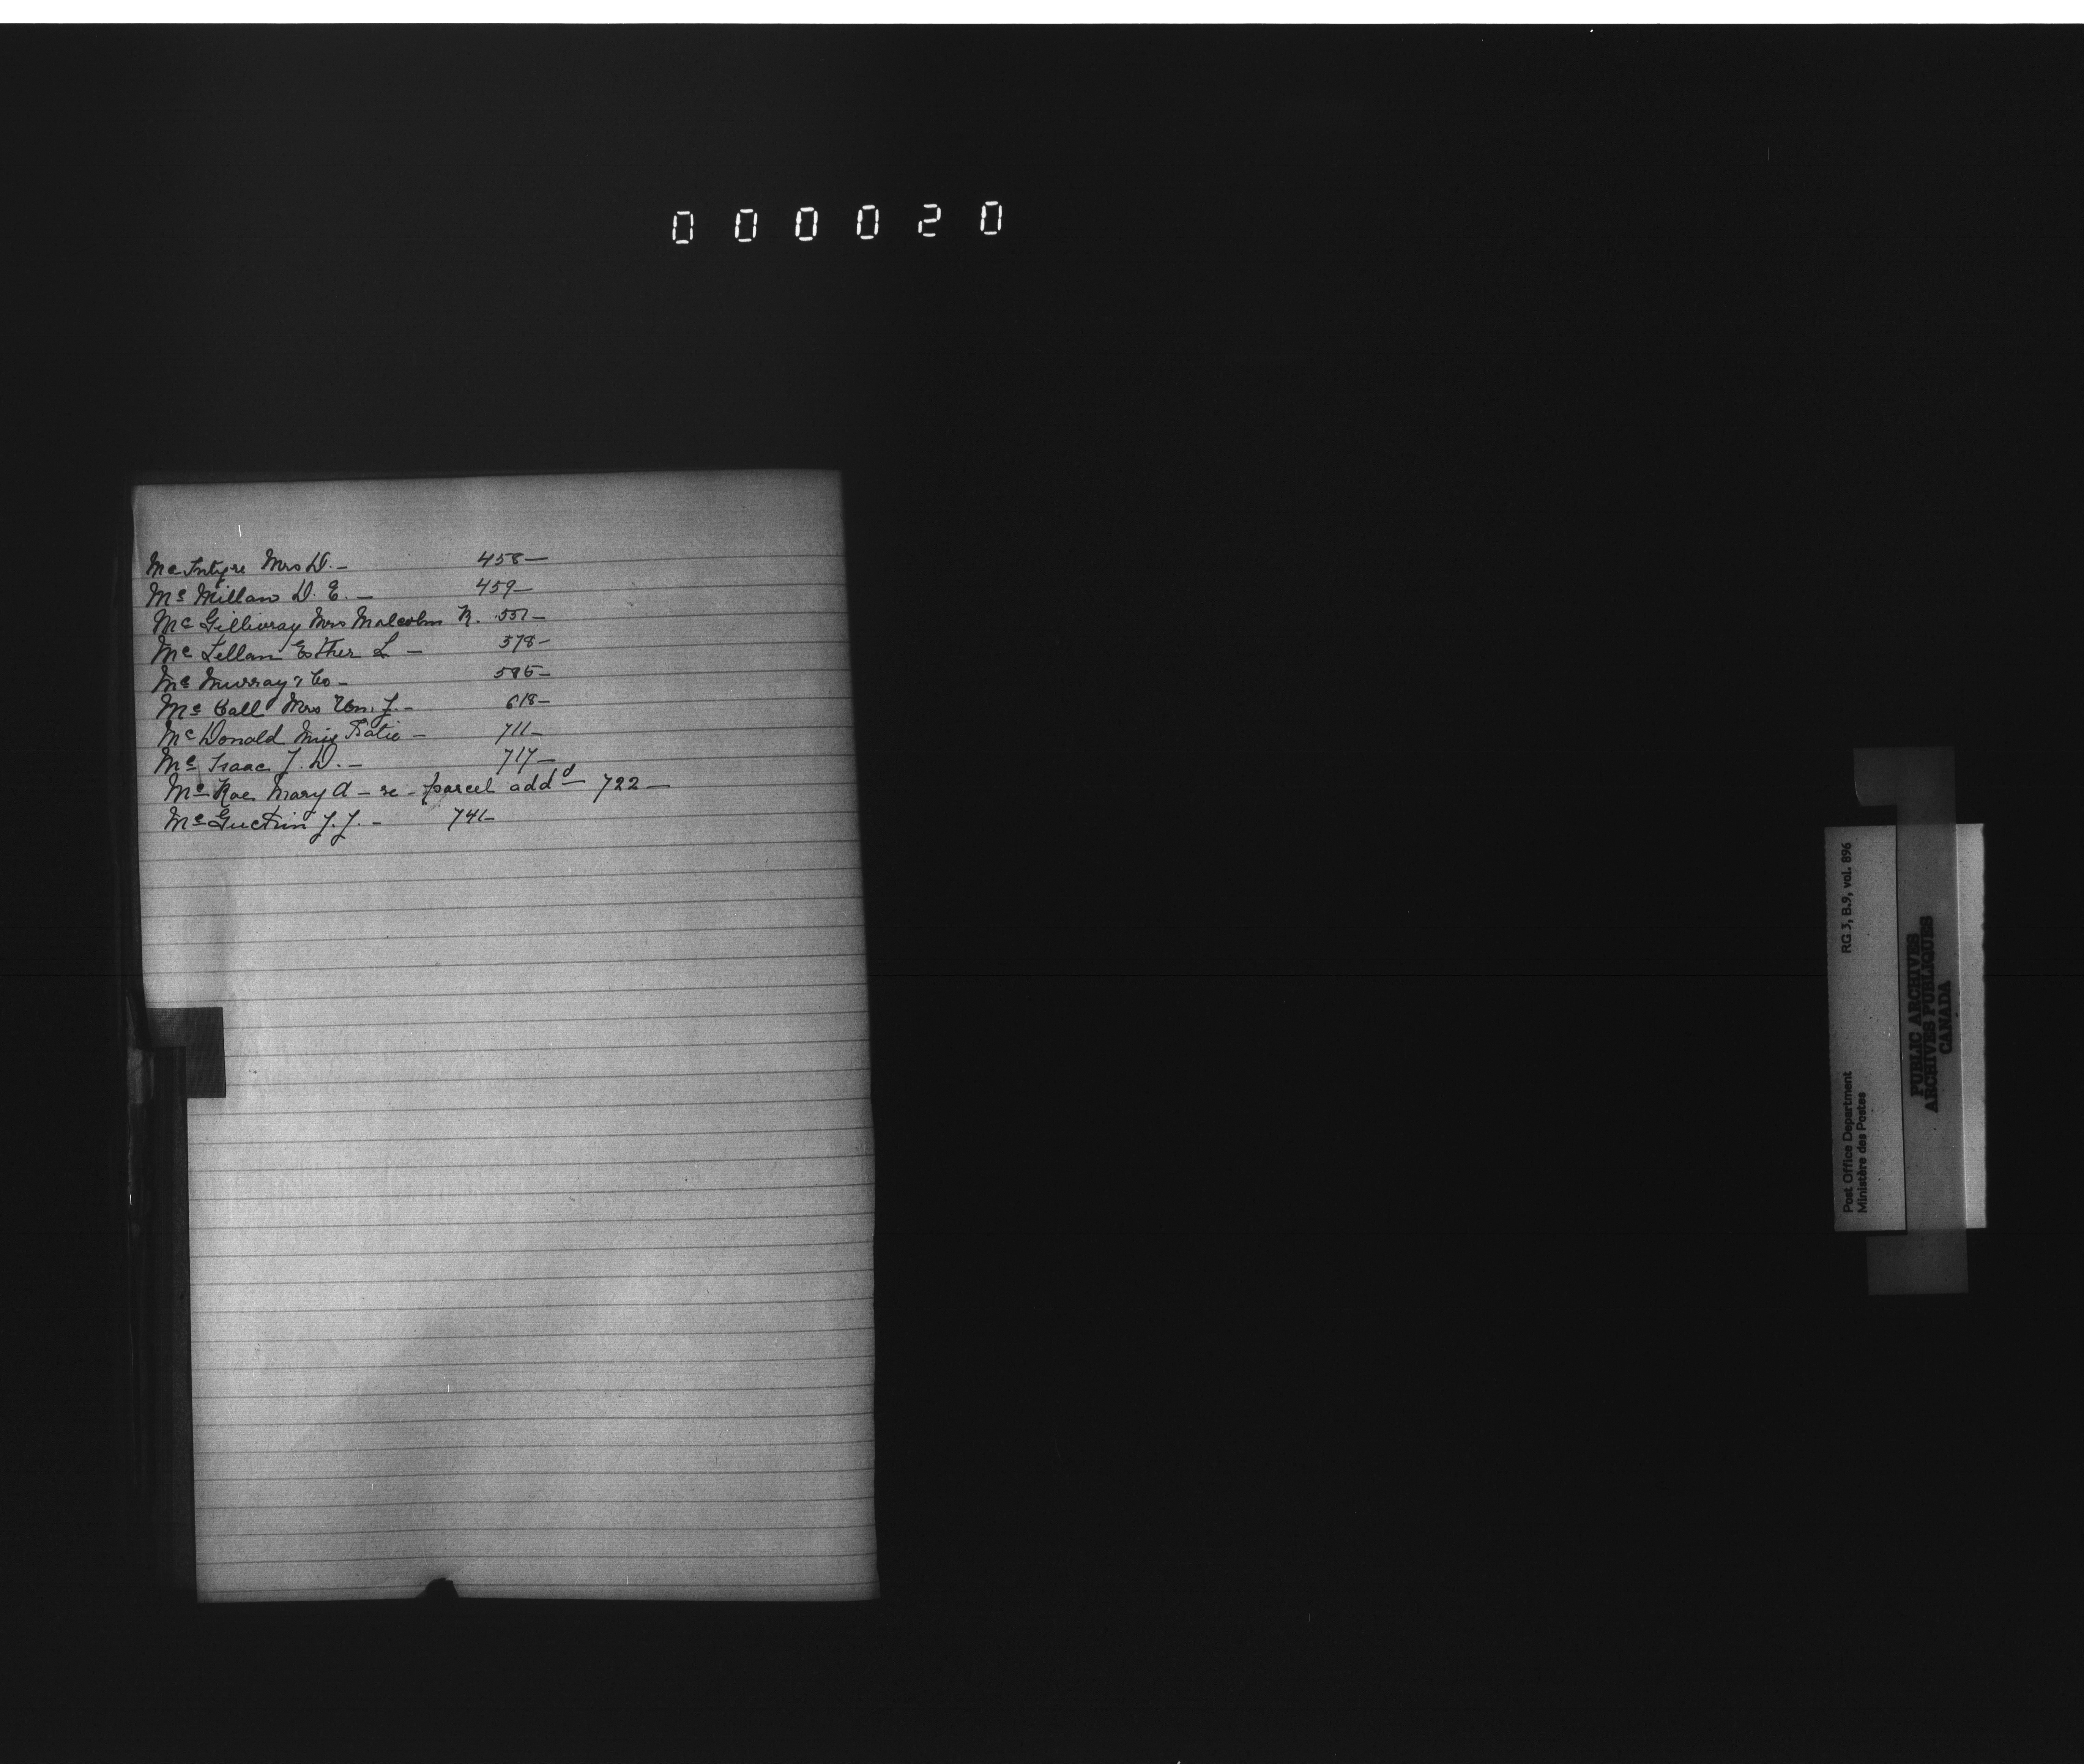 000020
McIntyre Mrs D. - 458 -
Mc Millan D. E. - 459 -
Mc Gillivray Mrs Malcolm N. 551 -
Mc Lellan Esther L - 578 -
Mc Murray & Co - 585 -
Mc Call Mrs Wm. J. - 618 -
Mc Donald Miss Katie - 711 -
Mc Isaac J. D. - 717 -
Mc Rae Mary A - re - parcel addd - 722 -
Mc J. J. - 741 -
Post Office Department RG 3, B.9, vol. 896
Ministère des Postes
PUBLIC ARCHIVES
ARCHIVES PUBLIQUES
CANADA